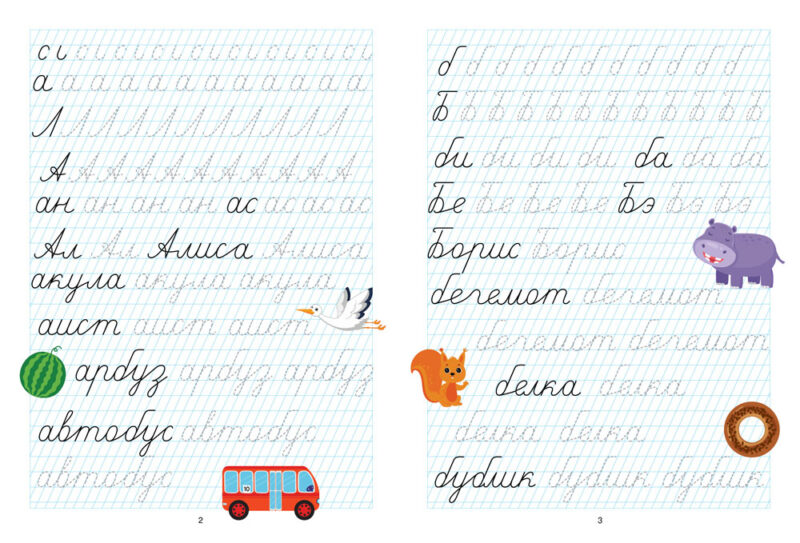 с ι с ι с ι с ι с ι с ι с ι с ι с ι
а а а а а а а а а а а а
Л Л Л Л Л Л Л Л Л Л Л
А А А А А А А А А А А
ан ан ан ан ас ас ас ас
Ал Ал Алиса Алиса
акула акула акула
аист аист аист
арбуз арбуз арбуз
автобус автобус
автобус
10
2
б б б б б б б б б б б
Б Б Б Б Б Б Б Б Б Б Б Б
би би би би ба ба ба
Бе Бе Бе Бе Бэ Бэ Бэ
Борис Борис
бегемот бегемот
бегемот бегемот
белка белка
белка белка
бублик бублик бублик
3